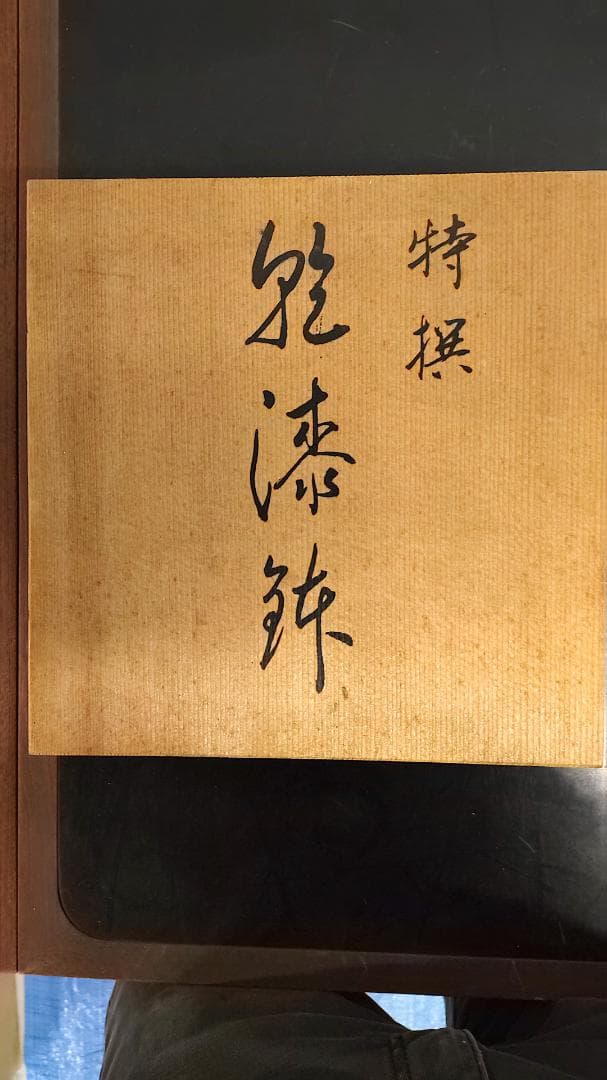 特撰
乾漆鉢